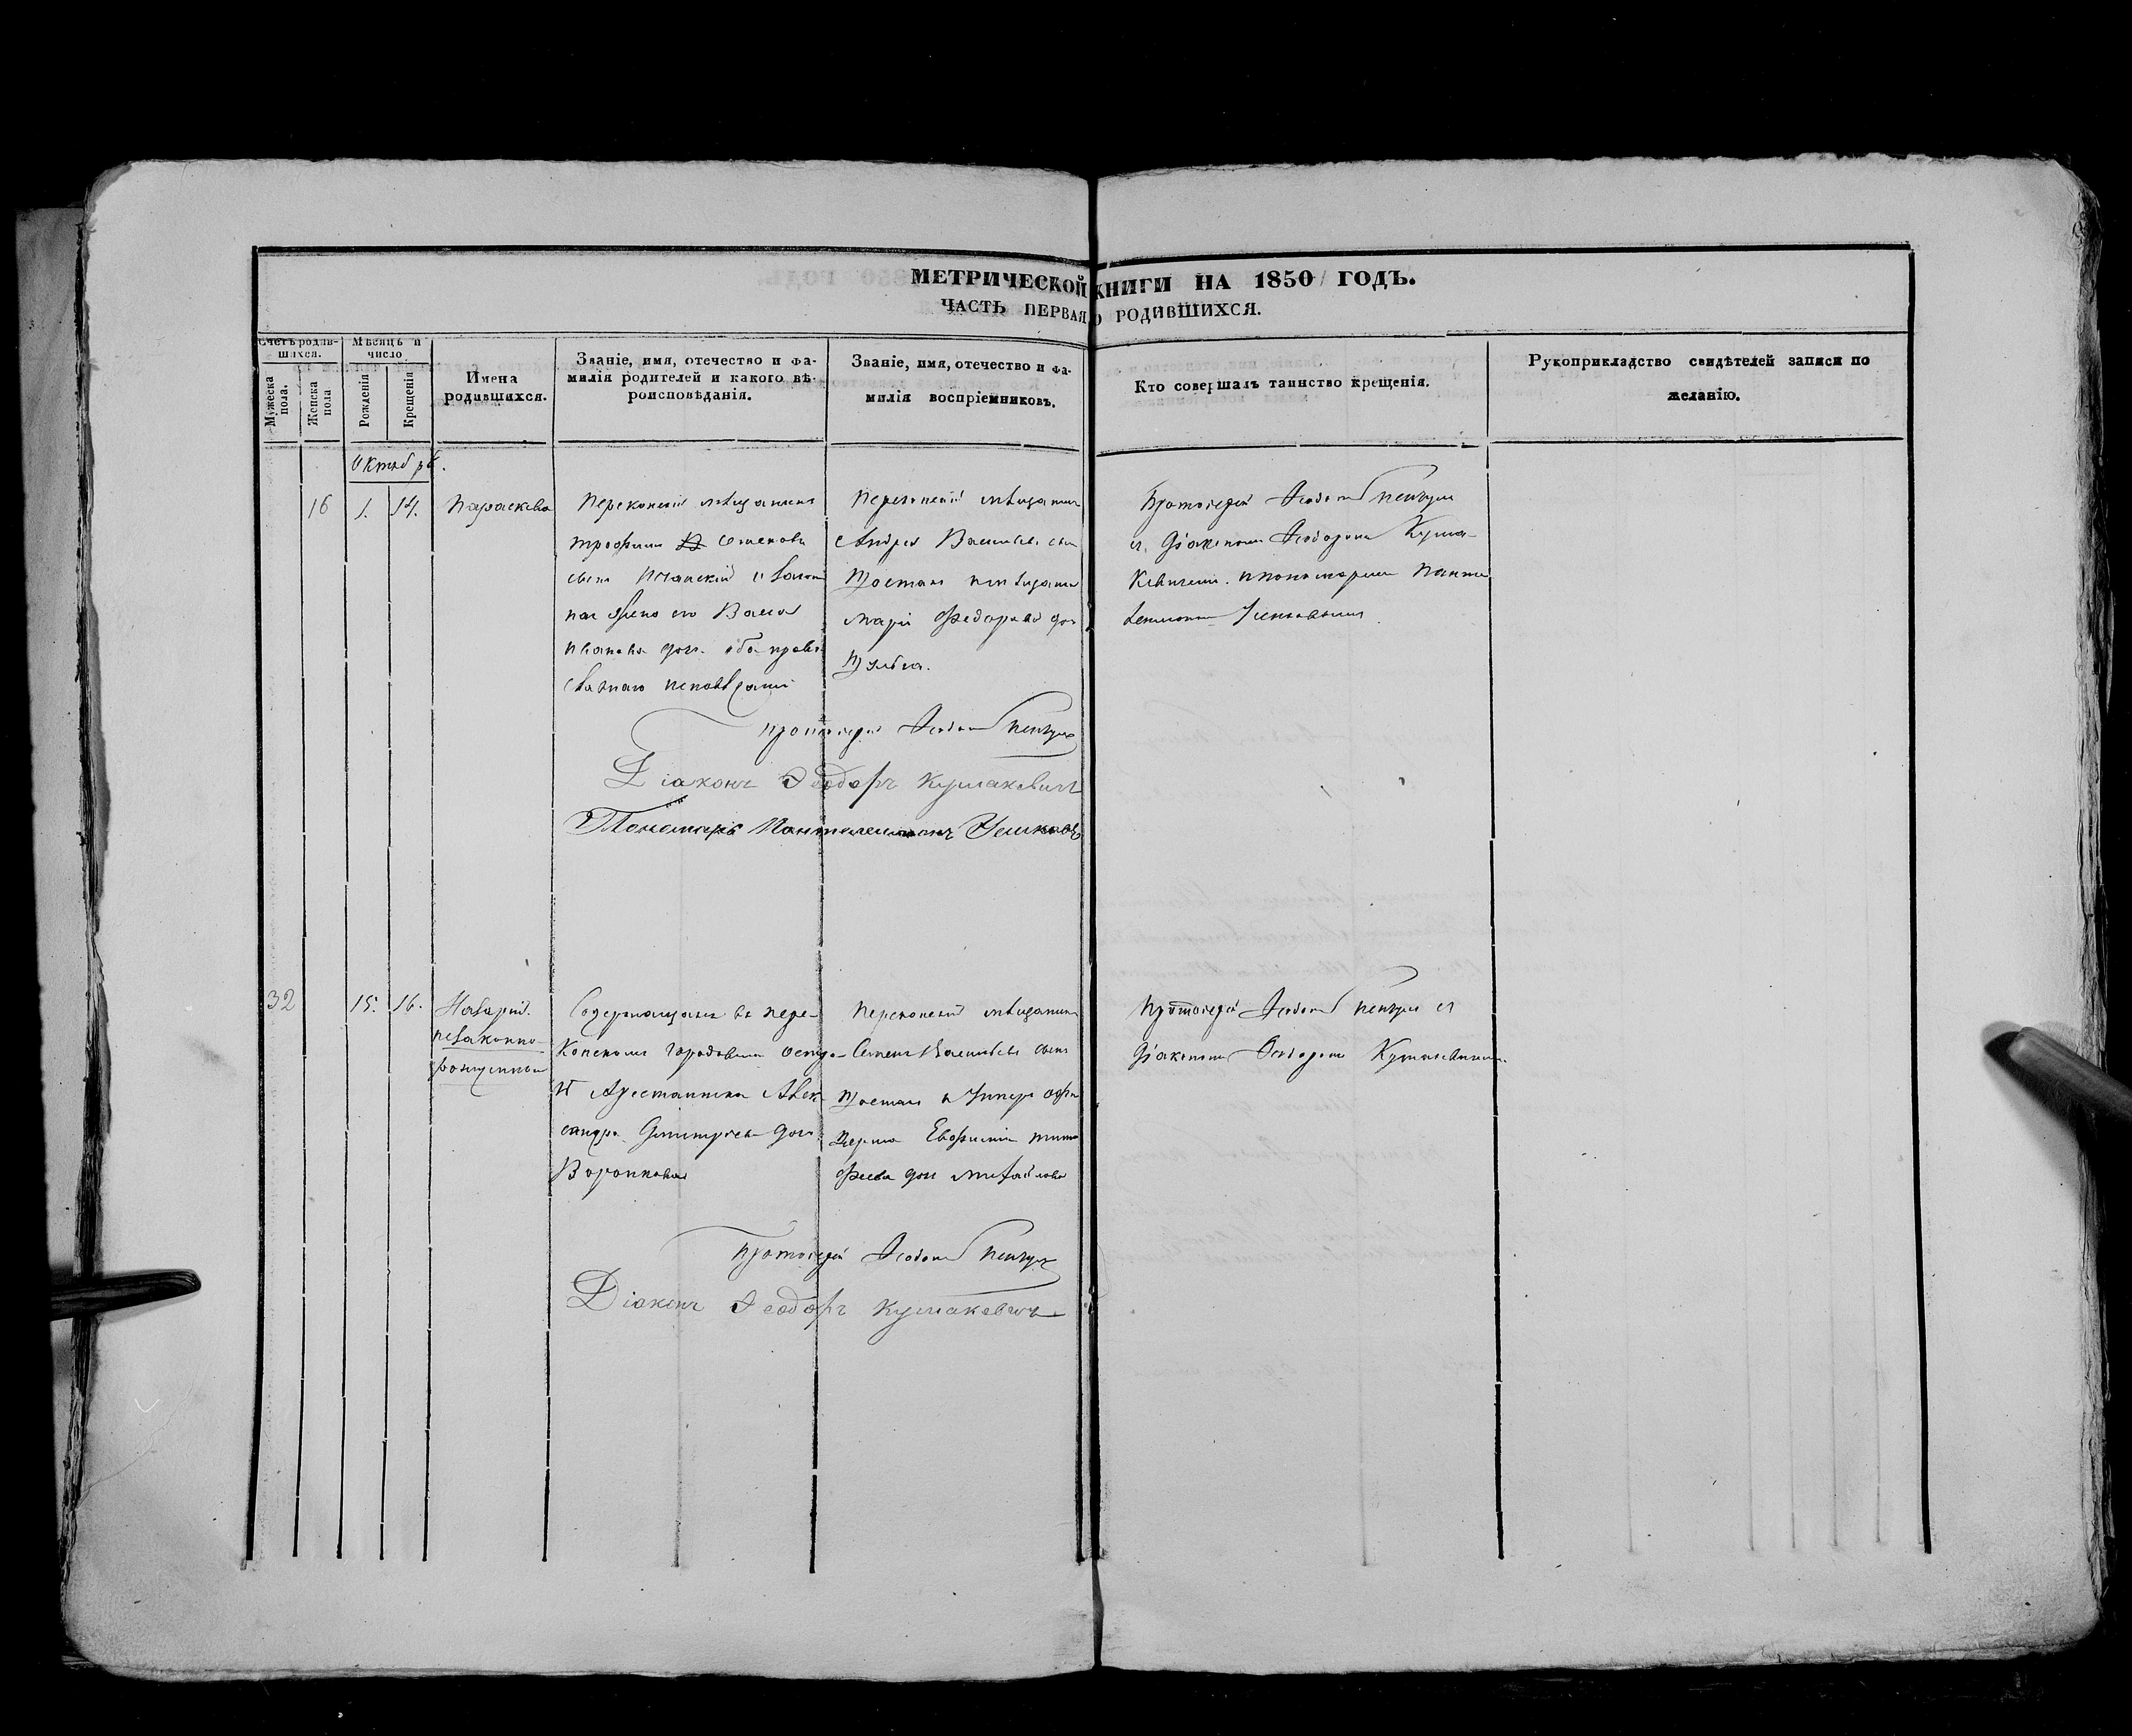 МЕТРИЧЕСКОЙ КНИГИ НА 1850 ГОДЪ.
ЧАСТЬ ПЕРВАЯ О РОДИВШИХСЯ.
Счетъ родившихся.
Мужеска пола.
Женска пола
Мѣсяцъ и число
Рожденія
Крещенія
Имена родившихся.
Званіе, имя, отечество и фа-
милія родителей и какого вѣ-
роисповѣданія.
Званіе, имя, отечество и фа-
милія воспріемниковъ.
Кто совершалъ таинство крещенія.
Рукоприкладство свидѣтелей записи по
желанію.
Октябрь.
16
1.
14.
Параскева
Перекопскій мѣщанинъ
Трофимъ Семеновъ
сынъ и закон
ная жена его Васса
Иванова доч. оба право
славнаго исповѣданія
Перекопскій мѣщанинъ
Андрей Васильевъ сынъ
мѣщанка
Марія Федорова доч
Протоіерей Феодотъ
съ Діакономъ Феодоромъ Кушма-
кевичемъ и пономаремъ Панте
леимономъ
Протоіерей Феодотъ
Діаконъ Феодоръ Кушмакевичъ
Пономарь Пантелеимонъ
32
15.
16.
Назарій.
незаконно-
рожденный
Содержащаяся въ Пере-
копскомъ городовомъ остро-
гѣ Арестантка Алек-
сандра Димитріева доч.
Воронкова
Перекопскій мѣщанинъ
Семенъ Васильевъ сынъ
и Унтеръ офи
церша Евфимія Тимо
феева доч Михайлова
Протоіерей Феодотъ съ
Діакономъ Феодоромъ Кушмакевичемъ.
Протоіерей Феодотъ
Діаконъ Феодоръ Кушмакевичъ